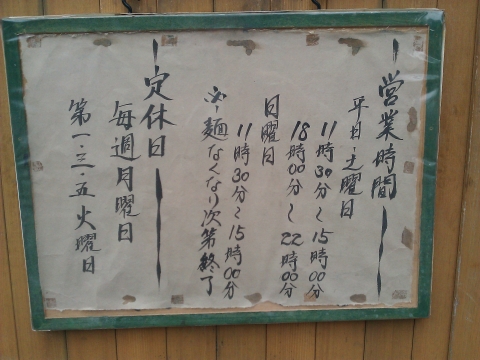 営業時間
平日・土曜日
11時30分〜15時00分
18時00分〜22時00分
日曜日
11時30分〜15時00分
※麺なくなり次第終了
定休日
毎週月曜日
第一・三・五火曜日